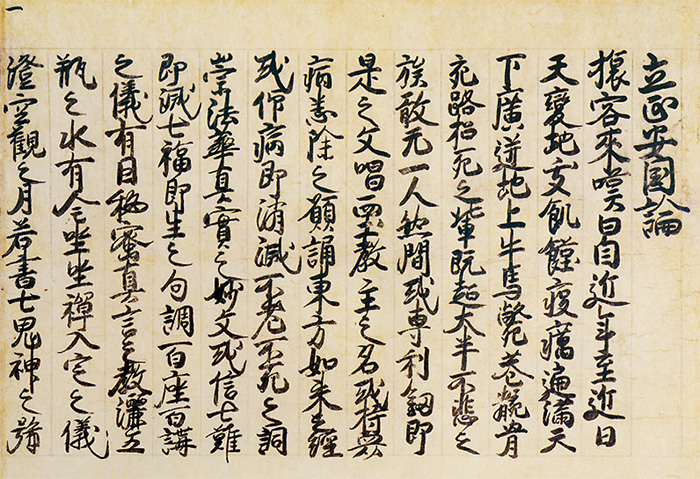 一
立正安国論
旅客來嘆曰自近年至近日
天變地夭飢饉疫癘遍滿天
下廣迸地上牛馬斃巷骸骨
充路招死之輩既超大半不悲之
族敢无一人然間或專利劔即
是之文唱西土教主之名或持衆
病悉除之願誦東方如来之經
或仰病即消滅不老不死之詞
崇法華真實之妙文或信七難
即滅七福即生之句調百座百講
之儀有因秘密真言之教灑五
瓶之水有全坐禪入定之儀
澄空觀之月若書七鬼神之号